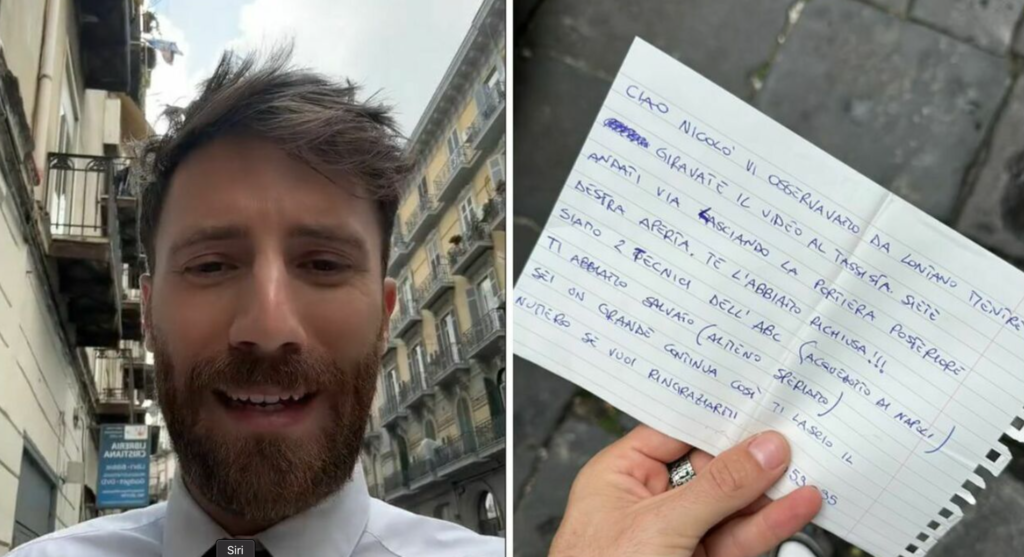 LIBRERIA
CRISTIANA
Libri - Bibbie
Gadget - DVD
Siri
CIAO NICOLO' VI OSSERVAVAMO DA LONTANO MENTRE
GIRAVATE IL VIDEO AL TASSISTA. SIETE
ANDATI VIA LASCIANDO LA PORTIERA POSTERIORE
DESTRA APERTA. TE L'ABBIAMO RICHIUSA!!!
SIAMO 2 TECNICI DELL'ABC (ACQUEDOTTO DI NAPOLI)
TI ABBIAMO SALVATO (ALMENO SPERIAMO)
SEI UN GRANDE CONTINUA COSI' TI LASCIO IL
NUMERO SE VUOI RINGRAZIARMI